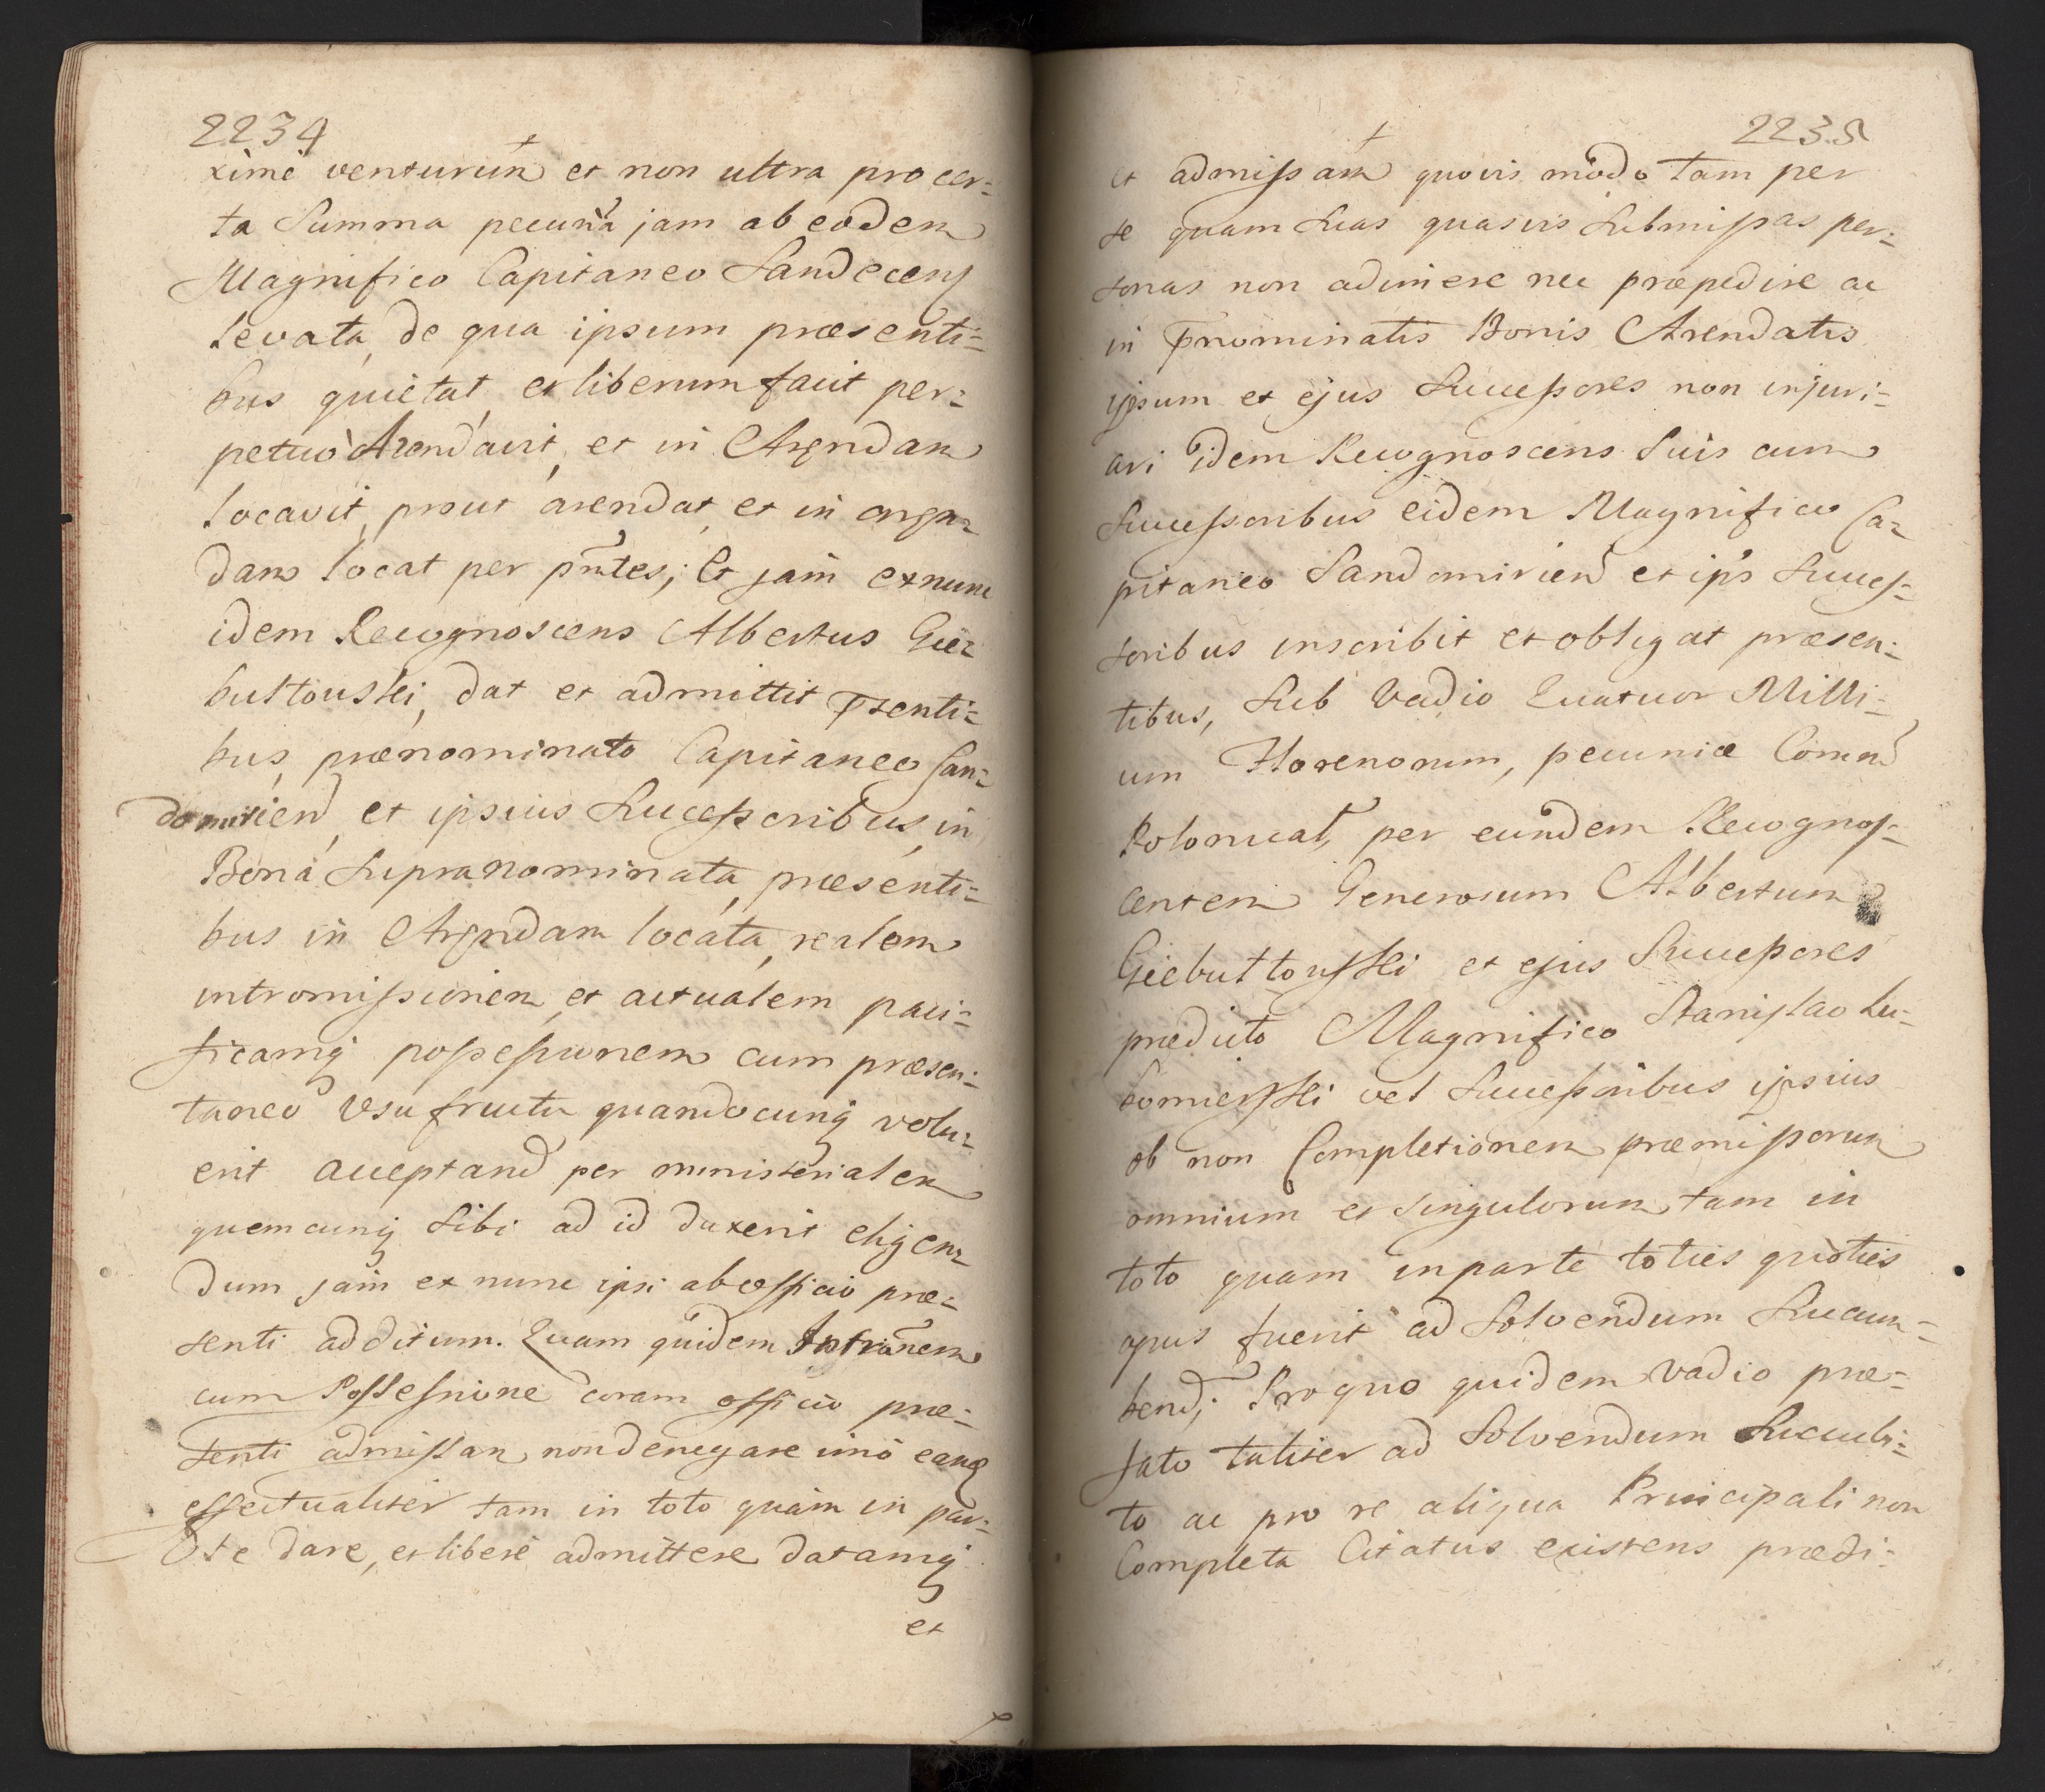 2234
ximè venturum et non ultra pro cer=
ta Summa pecuniâ jam ab eodem
Magnifico Capitaneo Sandecens
levata, de qua ipsum præsenti=
bus quietat, et liberum facit per=
petuo Arendavit, et in Arendam
locavit, prout arendat et in aren=
dam locat per pñtes; Et jam exnunc
idem Recognoscens Albertus Gie=
bultouski, dat et admittit pñsenti=
bus, prænominato Capitaneo San=
domirien, et ipsius Successoribus, in
Bona supranominata, præsenti=
bus in Arendam locata, realem
intromissionem, et actualem paci=
ficamq possessionem cum præsen=
taneo Usufructu quandocunq volu=
erit acceptand per ministerialem
quemcunq sibi ad id duxerit eligen=
dum jam ex nunc ipsi ab officio præ=
senti additum. Quam quidem Intrõnem
cum Possessione coram officio præ=
senti admissam non denegare imò eanq
effectualiter tam in toto quàm in par=
te dare, et liberè admittere datamq
et
2235
et admissam quovis modo tam per
se quam suas quasvis submissas per=
sonas non adimere nec præpedire ac
in pnominatis Bonis Arendatis
ipsum et ejus Successores non injuri=
ari idem Recognoscens suis cum
Successoribus eidem Magnifico Ca=
pitaneo Sandomirien et ips Succes=
soribus inscribit et obligat præsen=
tibus, sub Vadio Quatuor Milli=
um Florenorum, pecuniæ Comun
Polonical, per eundem Recognos=
centem Generosum Albertum
Giebultouski et ejus Successores
prædicto Magnifico Stanislao Lu=
bomierski vel Successoribus ipsius
ob non Completionem præmissorum
omnium et singulorum tam in
toto quam in parte toties quoties
opus fuerit ad Solvendum Succum=
bend; Pro quo quidem Vadio præ=
fato taliter ad Solvendum Succubi=
to ac pro re aliqua Principali non
Completa Citatus existens prædi=